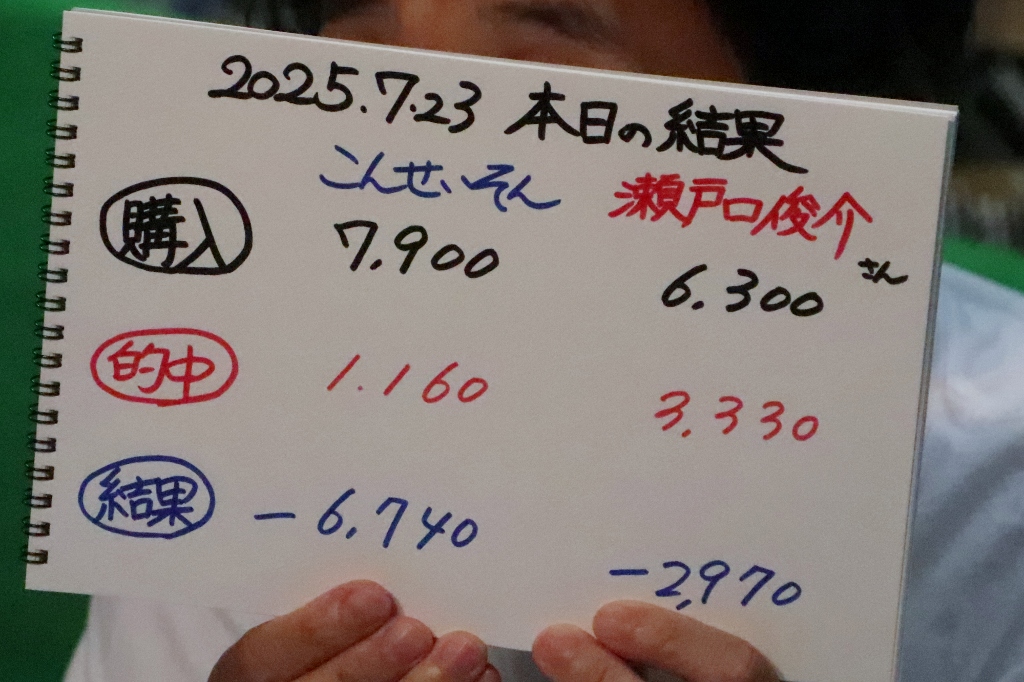 2025.7.23 本日の結果
こんせいそん 瀬戸口俊介さん
購入 7.900 6.300
的中 1.160 3.330
結果 -6.740 -2,970